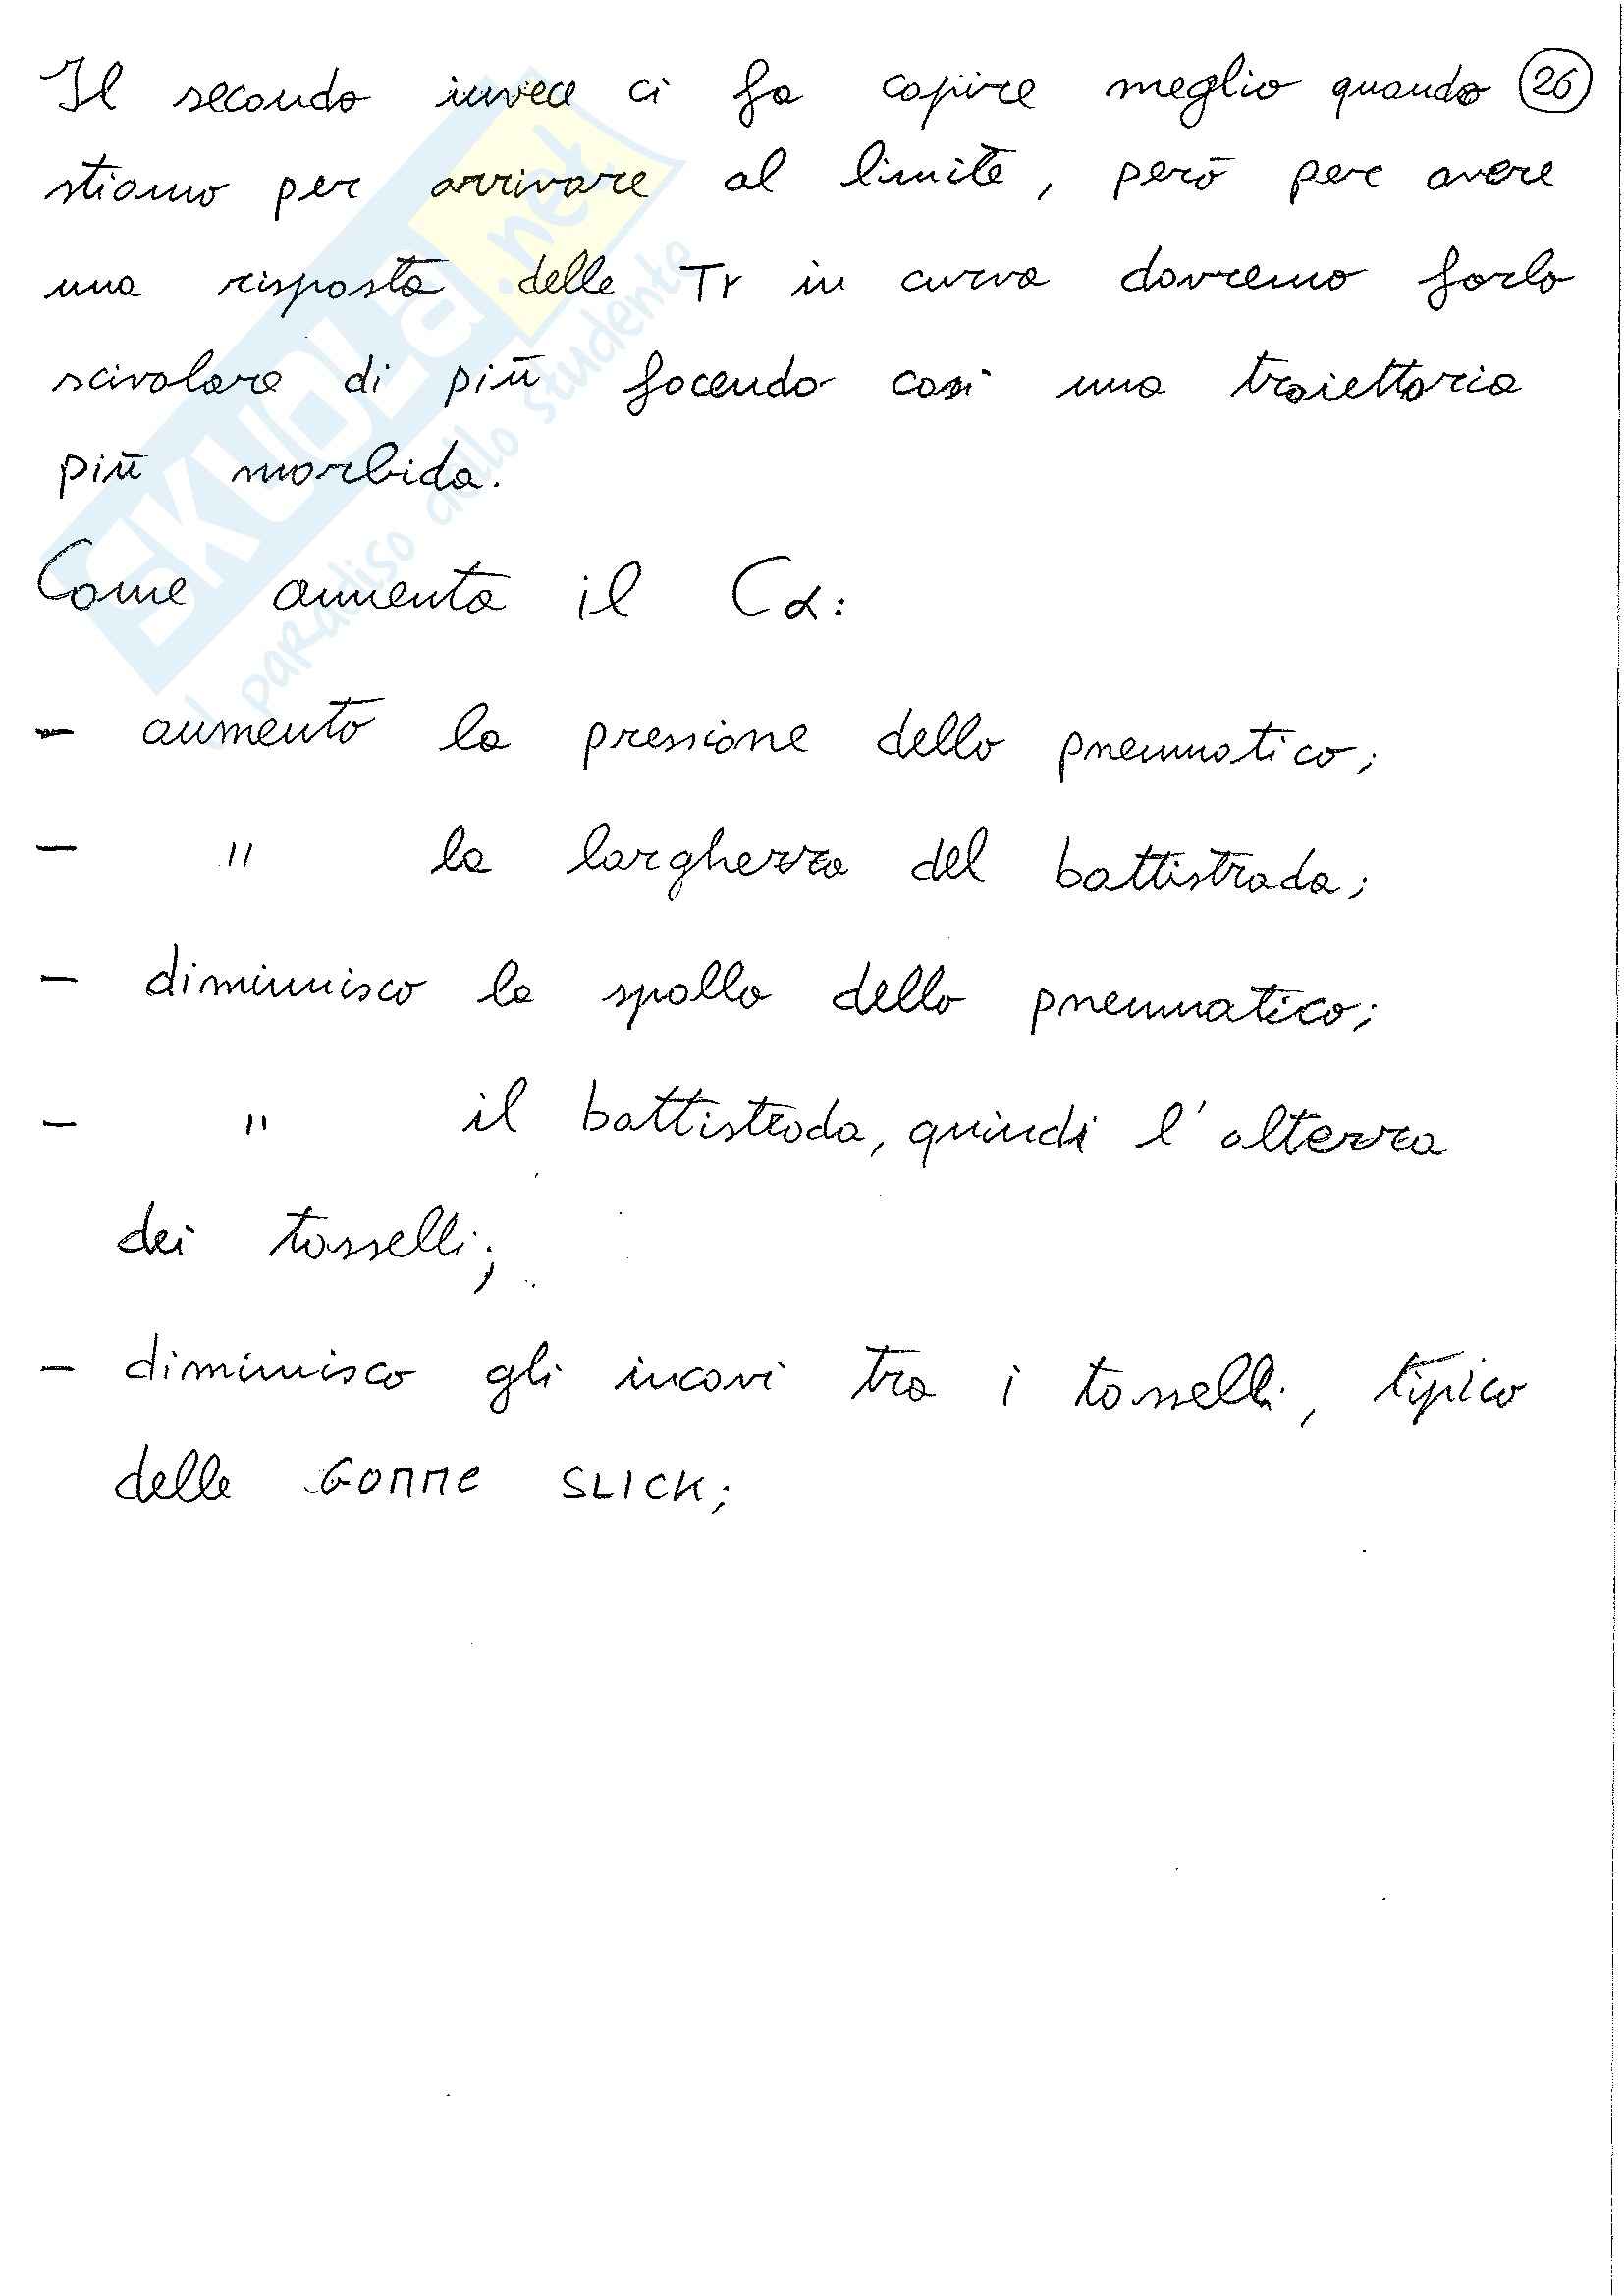 Il secondo invece ci fa capire meglio quando 26
stiamo per arrivare al limite, però per avere
una risposta delle Tr in curva dovremo farlo
scivolare di più facendo così una traiettoria
più morbida.
Come aumenta il Cα:
- aumento la pressione dello pneumatico;
- " la larghezza del battistrada;
- diminuisco la spalla dello pneumatico;
- " il battistrada, quindi l'altezza
dei tasselli;
- diminuisco gli incavi tra i tasselli, tipico
delle GOMME SLICK;
SKUOLA.net
il paradiso dello studente